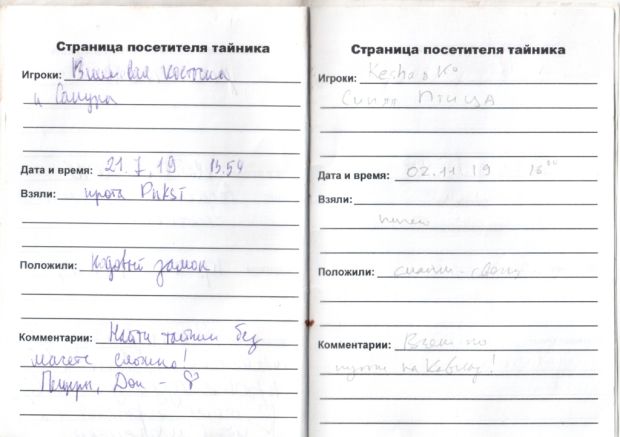 Страница посетителя тайника
Игроки: косточка
и Сакура
Дата и время: 21.7.19 13.54
Взяли:
Положили: кодовый замок
Комментарии: Найти тайник без
сложно!
Пещеры, Дон -
Страница посетителя тайника
Игроки: Kesha & Ko
Синяя ПТИЦА
Дата и время: 02.11.19 16
Взяли:
ничего
Положили:
Комментарии: Всем по
на Кавказ!